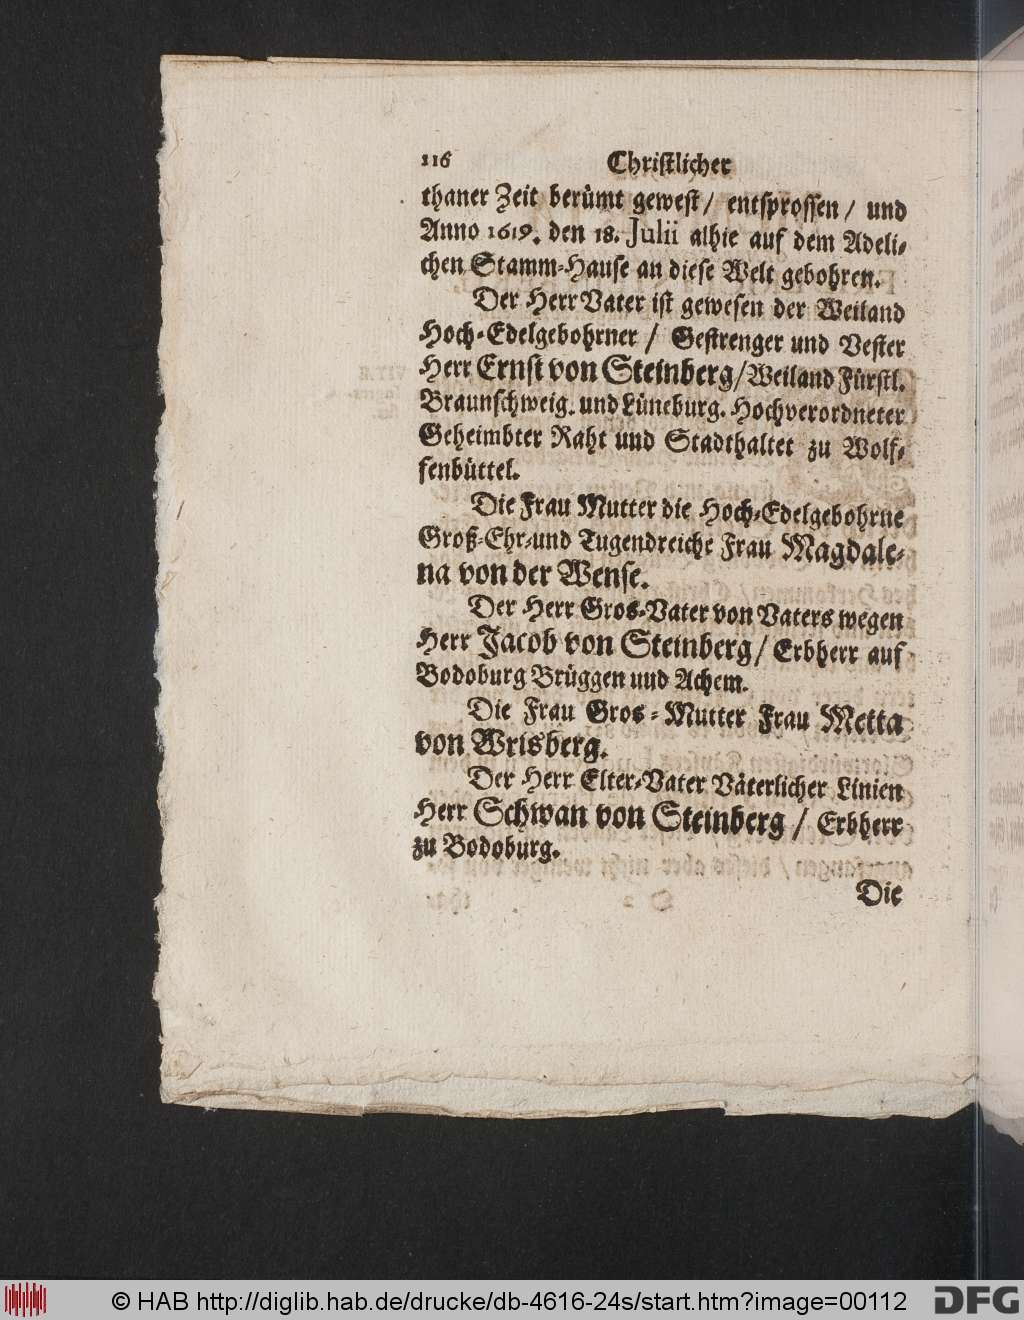 116 Christlicher
thaner Zeit berümt gewest / entsprossen / und
Anno 1619. den 18. Julii alhie auf dem Adeli-
chen Stamm-Hause an diese Welt gebohren.
Der Herr Vater ist gewesen der Weiland
Hoch-Edelgebohrner / Gestrenger und Vester
Herr Ernst von Steinberg/Weiland Fürstl.
Braunschweig. und Lüneburg. Hochverordneter
Geheimbter Raht und Stadthaltet zu Wolf-
fenbüttel.
Die Frau Mutter die Hoch-Edelgebohrne
Groß-Ehr-und Tugendreiche Frau Magdale-
na von der Wense.
Der Herr Gros-Vater von Vaters wegen
Herr Jacob von Steinberg/ Erbherr auf
Bodoburg Brüggen uud Achem.
Die Frau Gros-Mutter Frau Metta
von Wrisberg.
Der Herr Elter-Vater Väterlicher Linien
Herr Schwan von Steinberg / Erbherr
zu Bodoburg.
Die
© HAB http://diglib.hab.de/drucke/db-4616-24s/start.htm?image=00112
DFG